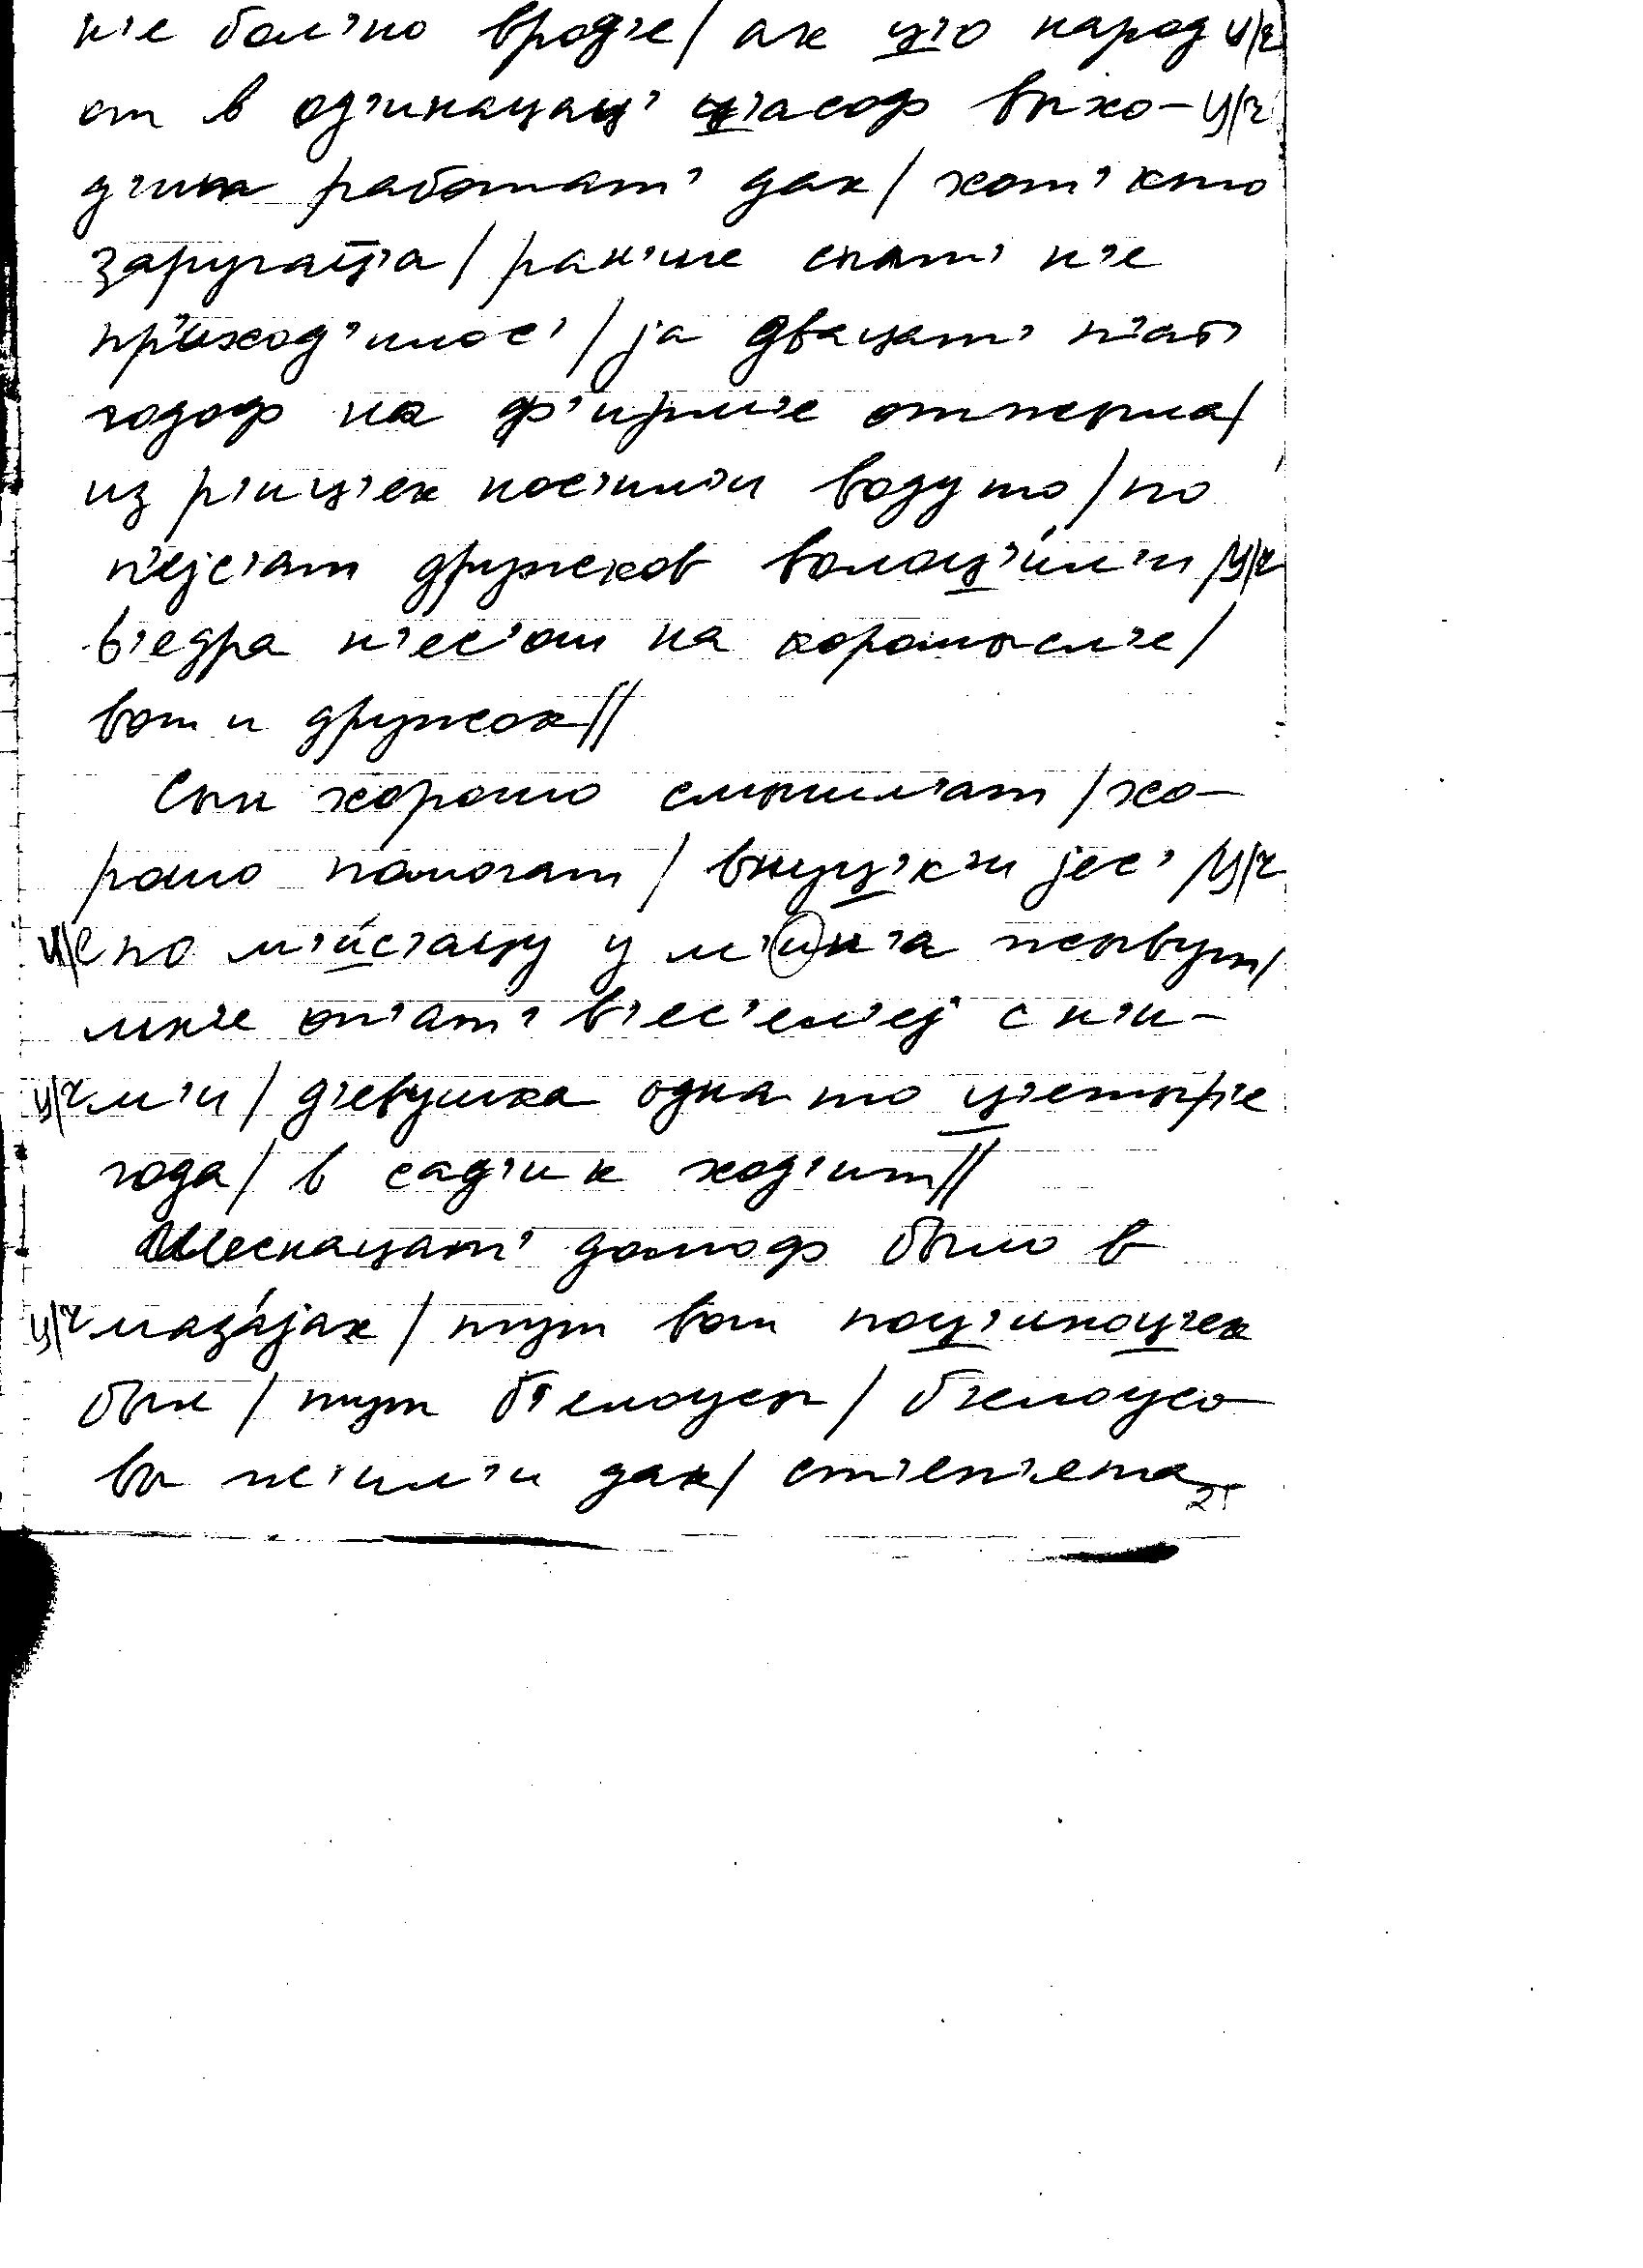 н'е бол'но врод'е/ ак ц'о народ ц/ч
от в од'инацац' ц'асоф выхо- ц/ч
д'им работат' дак/ хот' кто
заругајц'а/ ран'ше спат' н'е
пр'иход'илос'/ ја двацат' п'ат'
годоф на ф'ирм'е отперла/
из р'иц'ек нос'ил'и воду то/ по
п'ејс'ат дружков волоц'ил'и/ ц/ч
в'едра н'ес'ош на коромысл'е/
вот и дружок//
Сын хорошо смышл'ат/ хо-
рошо помогат/ внуц'к'и јес'/ ц/ч
ц/с по м'ис'ацу у м'ин'а жывут/
мн'е оп'ат' в'ес'ел'еј с н'и-
ц/ч м'и/ д'евушка одна то ц'етыр'е
года/ в сад'ик ход'ит//
Шеснацат' домоф было в
ц/ч мазајах/ тут вот поц'иноц'ек
был/ тут б'елоусы/ б'елоусо
вы жил'и дак/ ст'еп'ета